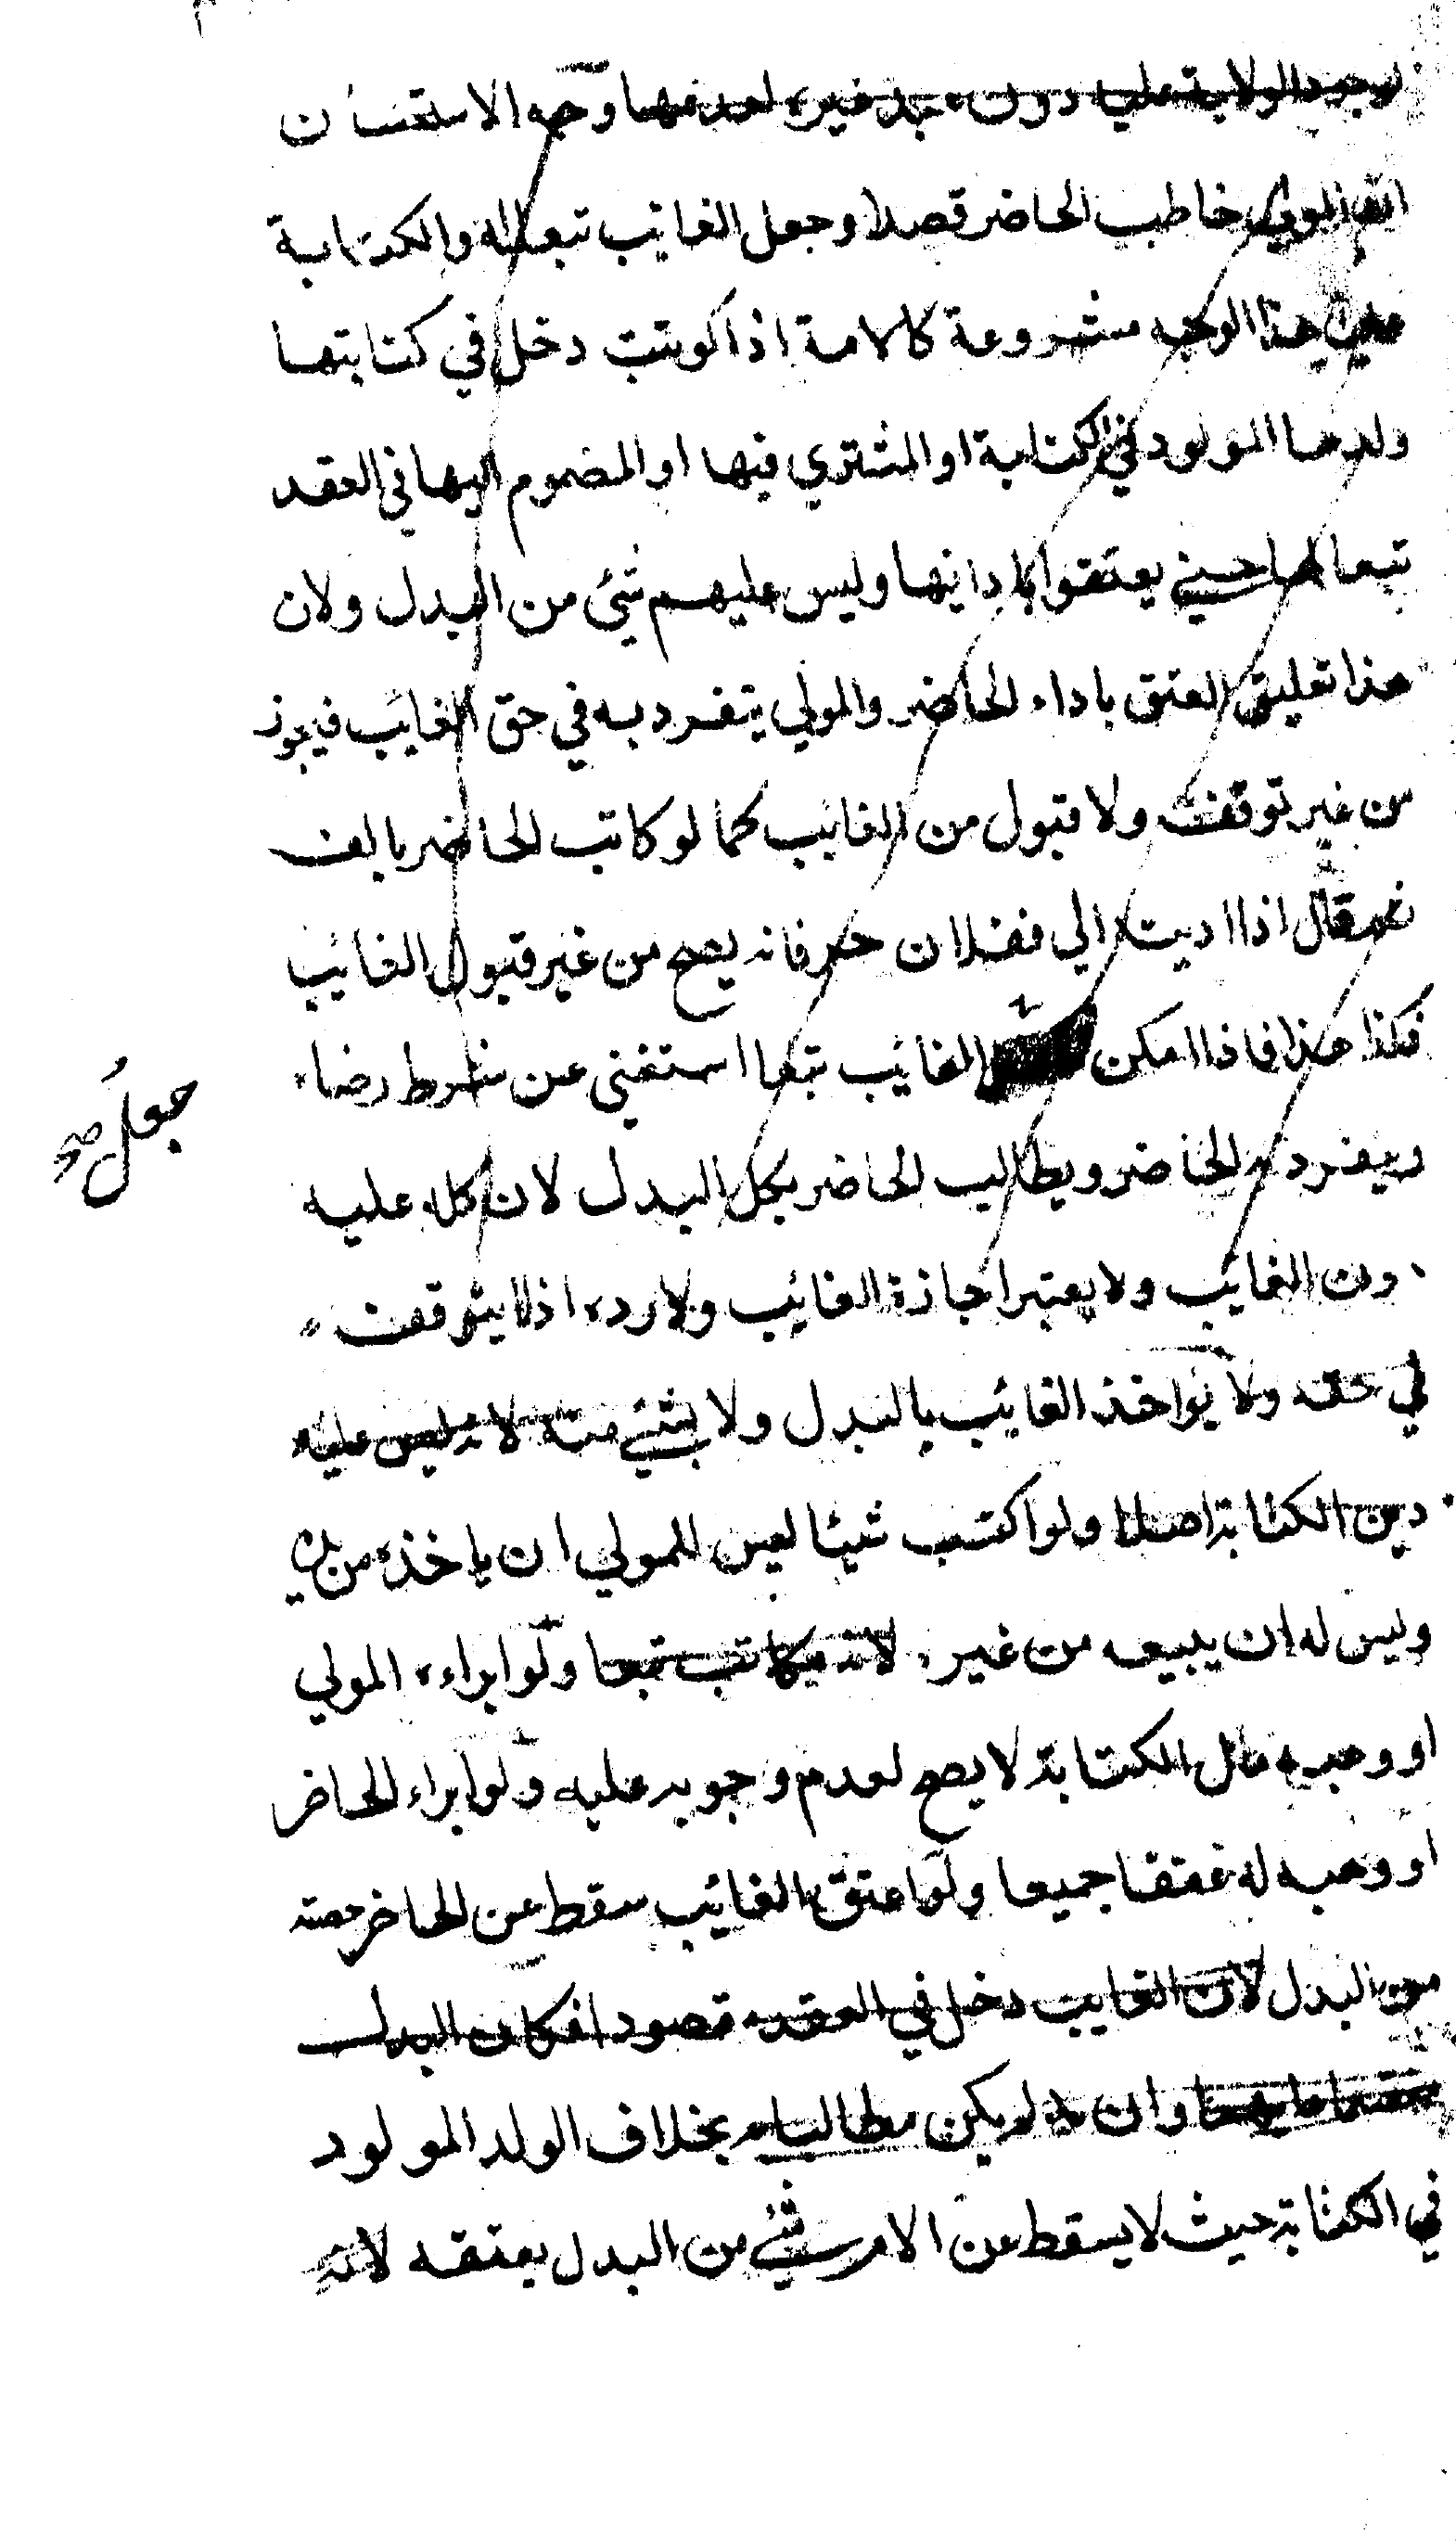 لوجود الولاية عليها دون يد غيره لعدمها وجه الاستحسان
ان المولي خاطب الحاضر قصدا وجعل الغايب تبعا له والكتابة
علي هذا الوجه مشروعة كالامة اذا كوتبت دخل في كتابتها
ولدها المولود في الكتابة او المشتري فيها او المضموم اليها في العقد
تبعا لها حتي يعتقوا بادائها وليس عليهم شئ من البدل ولان
هذا تعليق العتق باداء الحاضر والمولي يتفرد به في حق الغائب فيجوز
من غير توقف ولا قبول من الغائب كما لو كاتب الحاضر بالف
ثم قال اذا اديت الي ففلان حر فانه يصح من غير قبول الغائب
فكذا هذا فاذا امكن الغائب تبعا استغني عن شرط رضاه
جعل صح
وينفرد به الحاضر ويطالب الحاضر بكل البدل لان كله عليه
دون الغائب ولا يعتبر اجازة الغائب ولا رده اذ لا يتوقف
في حقه ولا يؤاخذ الغائب بالبدل ولا بشئ منه لانه ليس عليه
دين الكتابة اصلا ولو اكتسب شيئا ليس للمولي ان ياخذه من يده
وليس له ان يبيعه من غيره لانه مكاتب تبعا ولو ابراءه المولي
او وهبه مال الكتابة لا يصح لعدم وجوبه عليه ولو ابراء الحاضر
او وهبه له عتقا جميعا ولو اعتق الغائب سقط عن الحاضر حصته
من البدل لان الغايب دخل في العقد مقصودا فكان البدل
منقسما عليهما وان لم يكن مطالبا به بخلاف الولد المولود
في الكتابة حيث لا يسقط عن الام شئ من البدل بعتقه لانه